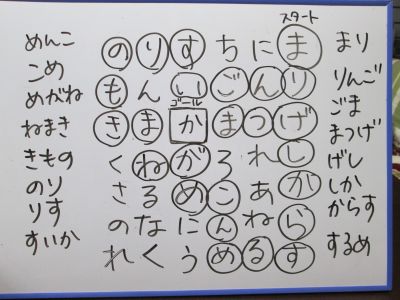 スタート
めんこ
こめ
めがね
ねまき
きもの
のり
りす
すいか
のりすちにま
もんいごんり
ゴール
きまかまつげ
くねがろれし
さるめこあか
のなにんねら
れくうめるす
まり
りんご
ごま
まつげ
げし
しか
からす
するめ